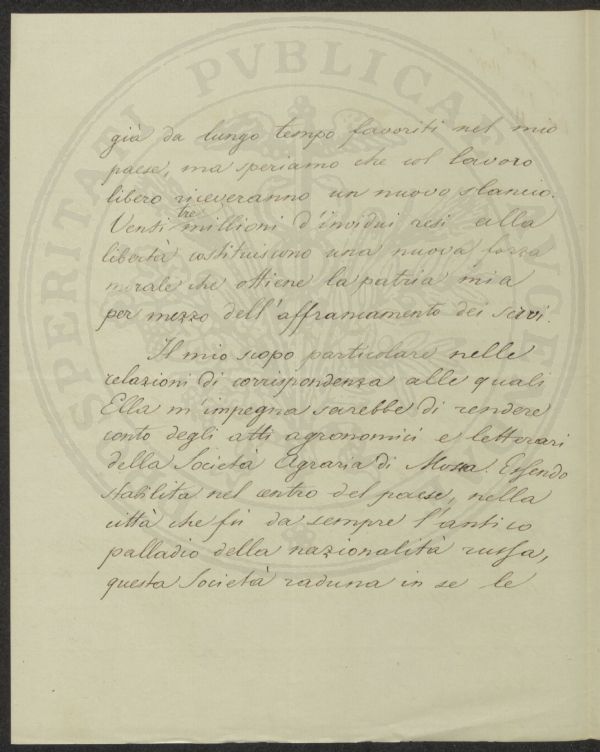 già da lungo tempo favoriti nel mio
paese, ma speriamo che col lavoro
libero riceveranno un nuovo slancio.
Venti tre millioni d'invidui resi alla
libertà costituiscono una nuova forza
morale che ottiene la patria mia
per mezzo dell'affrancamento dei servi.
Il mio scopo particolare nelle
relazioni di corrispondenza alle quali
Ella m'impegna sarebbe di rendere
conto degli atti agronomici e letterari
della Società Agraria di Mosca. Essendo
stabilita nel centro del paese, nella
città che fù da sempre l'antico
palladio della nazionalità russa,
questa Società raduna in se le